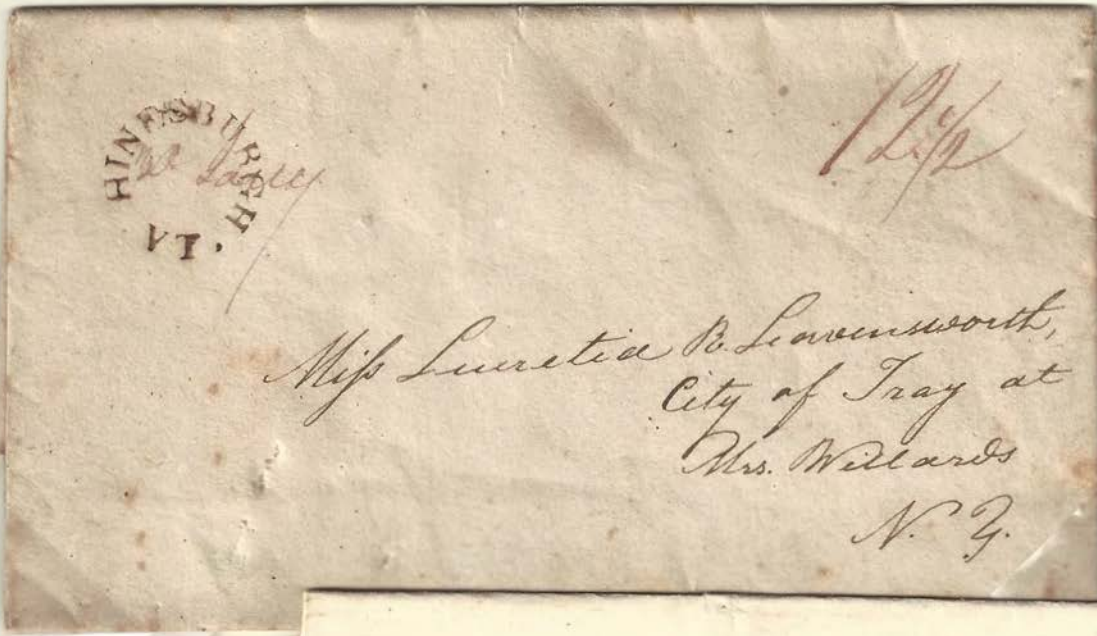 HINESBURGH
VT.
12 1/2
Miss Lucretia R. Leavensworth,
City of Troy at
Mrs. Willards
N. Y.